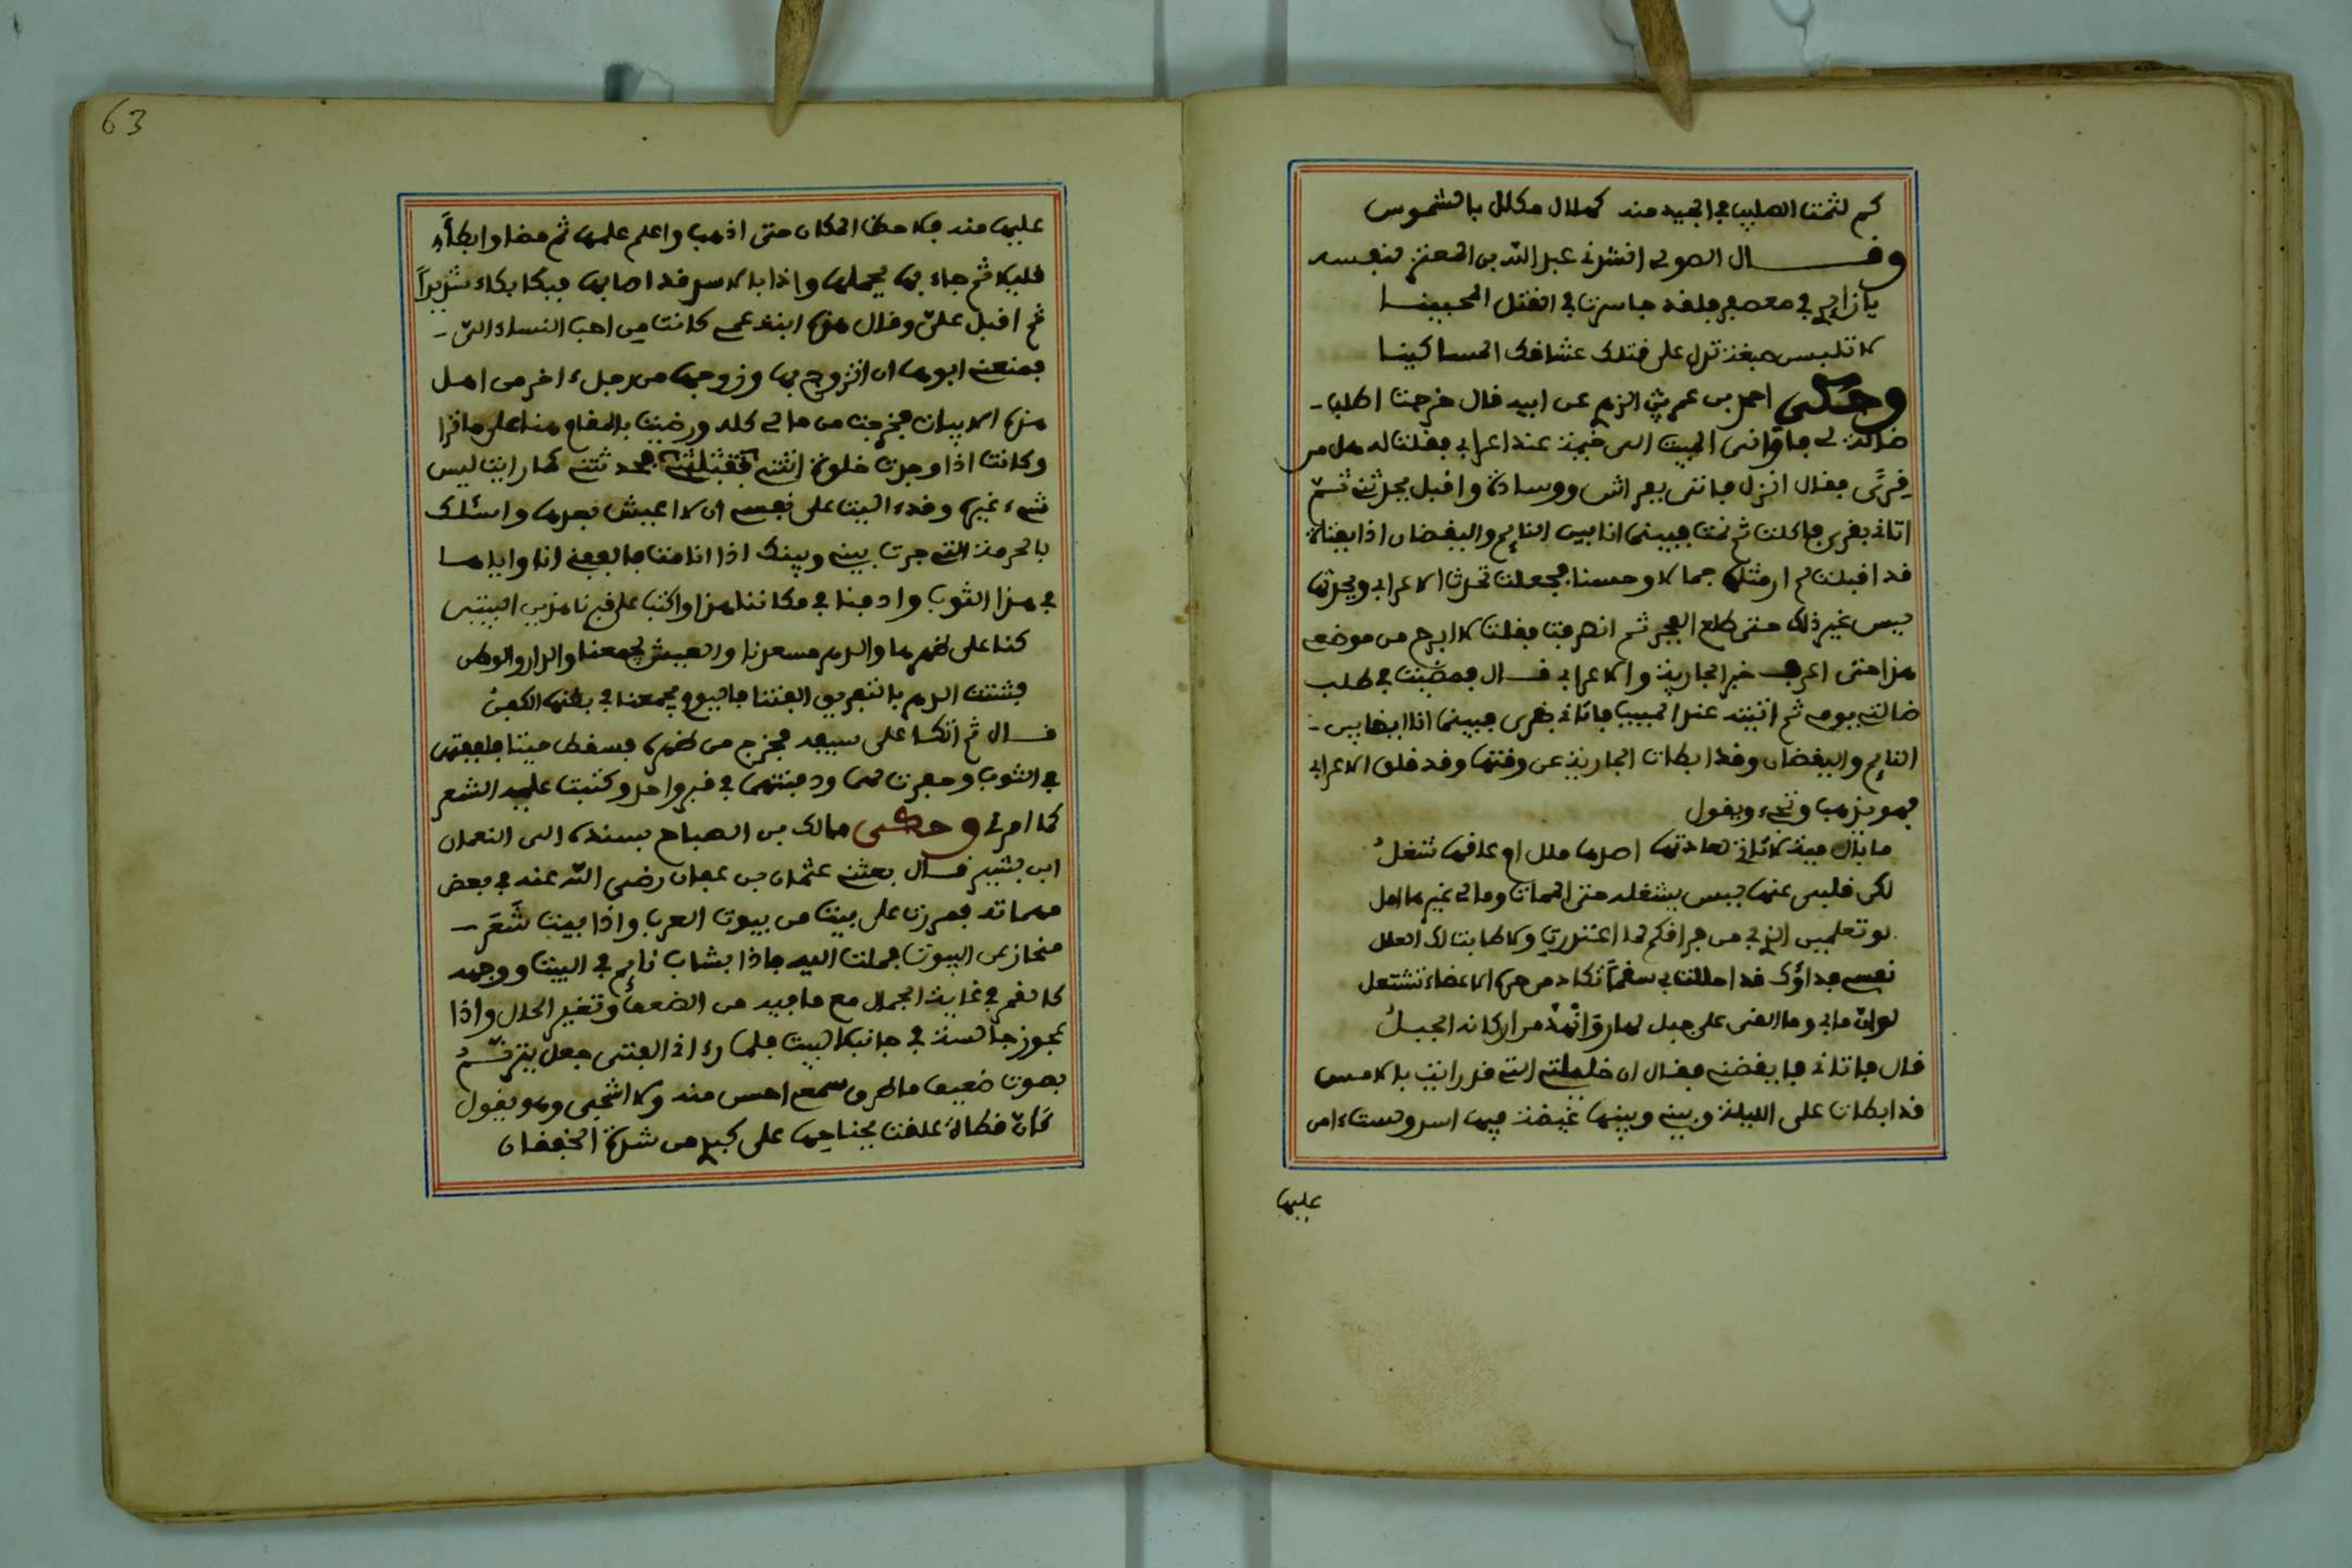 كم لثمت الصليب في الجيد منه كهلال مكلل بالشموس
وقال الصولي انشدني عبد الله بن المعتز لنفسه
يا زايري في معصفر فلقد جاسرت في القتل المحبينا
لا تلبس صبغة تدل على قتلك عشاقك المساكينا
وحكى احمد بن عمر الزهري عن ابيه قال خرجت اطلب
ضالة لي فاواني المبيت الى خيمة عند اعرابي فقلت له هل من
قِرًى فقال انزل فاتى بفراش ووسادة واقبل يحدثني ثم
اتاني بقرى فاكلت ثم نمت فبينما انا بين النايم واليقضان اذا بفتاة
قد اقبلت لم ار مثلها جمالا وحسنا فجعلت تحدث الاعرابي ويحدثها
ليس غير ذلك حتى طلع الفجر ثم انصرفت فقلت لا ابرح من موضعي
هذا حتى اعرف خبر الجارية والاعرابي قال فمضيت في طلب
ضالتي يومي ثم اتيته عند المبيت فاتاني بقرى فبينما انا ايضا بين
النايم واليقضان وقد ابطات الجارية عن وقتها وقد قلق الاعرابي
فهو يذهب ويجيء ويقول
ما بال مية لا تاتي لعادتها اصدها ملل ام عاقها شغلُ
لكن قلبي عنها ليس يشغله حتى الممات ومالي غيرها امل
لو تعلمين الذي من فراقكم لما اعتذرت ولا طابت لك العلل
نفسي فداؤك قد احللت بي سقمًا تكاد من حره الاعضاء تشتعل
لو ان مابي وما القى على جبل لمار وانهد من اركانه الجبلُ
قال فاتاني فايقضني فقال ان خليلتي التي قد رايت بالامس
قد ابطات علي الليلة وبيني وبينها غيضة فيها اسد ولست امن
عليها
63
عليها منه فلاحظ المكان حتى اذهب واعلم علمها ثم مضا وابطأ
قليلا ثم جاء بها يحملها واذا بالاسد قد اصابها فبكا بكاء شديدًا
ثم اقبل علي وقال هذه ابنة عمي كانت من احب النساء الي
فمنعني ابوها ان اتزوج بها وزوجها من رجل اخر من اهل
هذه الابيات فخرجت من مالي كله ورضيت بالمقام هنا على ما ترا
وكانت اذا وجدت خلوة اتتني فتقبلني فحدثتني كما رايت ليس
شيء غيره وقد اليت على نفسي ان لا اعيش بعدها واسئلك
بالحرمة التي جرت بيني وبينك اذا انا مت فالففني انا واياها
في هذا الثوب وادفنا في مكاننا هذا واكتب على قبرنا هذين البيتين
كنا على ظهرها والدهر مسعدنا والعيش يجمعنا والدار والوطن
فشتت الدهر بالتفريق الفتنا فاليوم يجمعنا في بطنها الكفنُ
قال ثم اتكا على سيفه فخرج من ظهره فسقط ميتا فلففتهما
في الثوب وحفرت لهما ودفنتهما في قبر واحد وكتبت عليه الشعر
كما امرني وحكى مالك بن الصباح بسنده الى النعمان
ابن بشير قال بعثني عثمان بن عفان رضي الله عنه في بعض
مهماته فمررت على بيت من بيوت العرب واذا ببيت شَعَر
منحاز عن البيوت فملت اليه فاذا بشاب نايم في البيت ووجهه
كالقمر في غاية الجمال مع ما فيه من الضعف وتغير الحال واذا
عجوز جالسة في جانب البيت فلما راني الفتى جعل يترنّمُ
بصوت ضعيف ما طرق سمعي احسن منه ولا اشجى وهو يقول
كَأنّ قطاة علقت بجناحيها على كبدي من شدة الخفقان